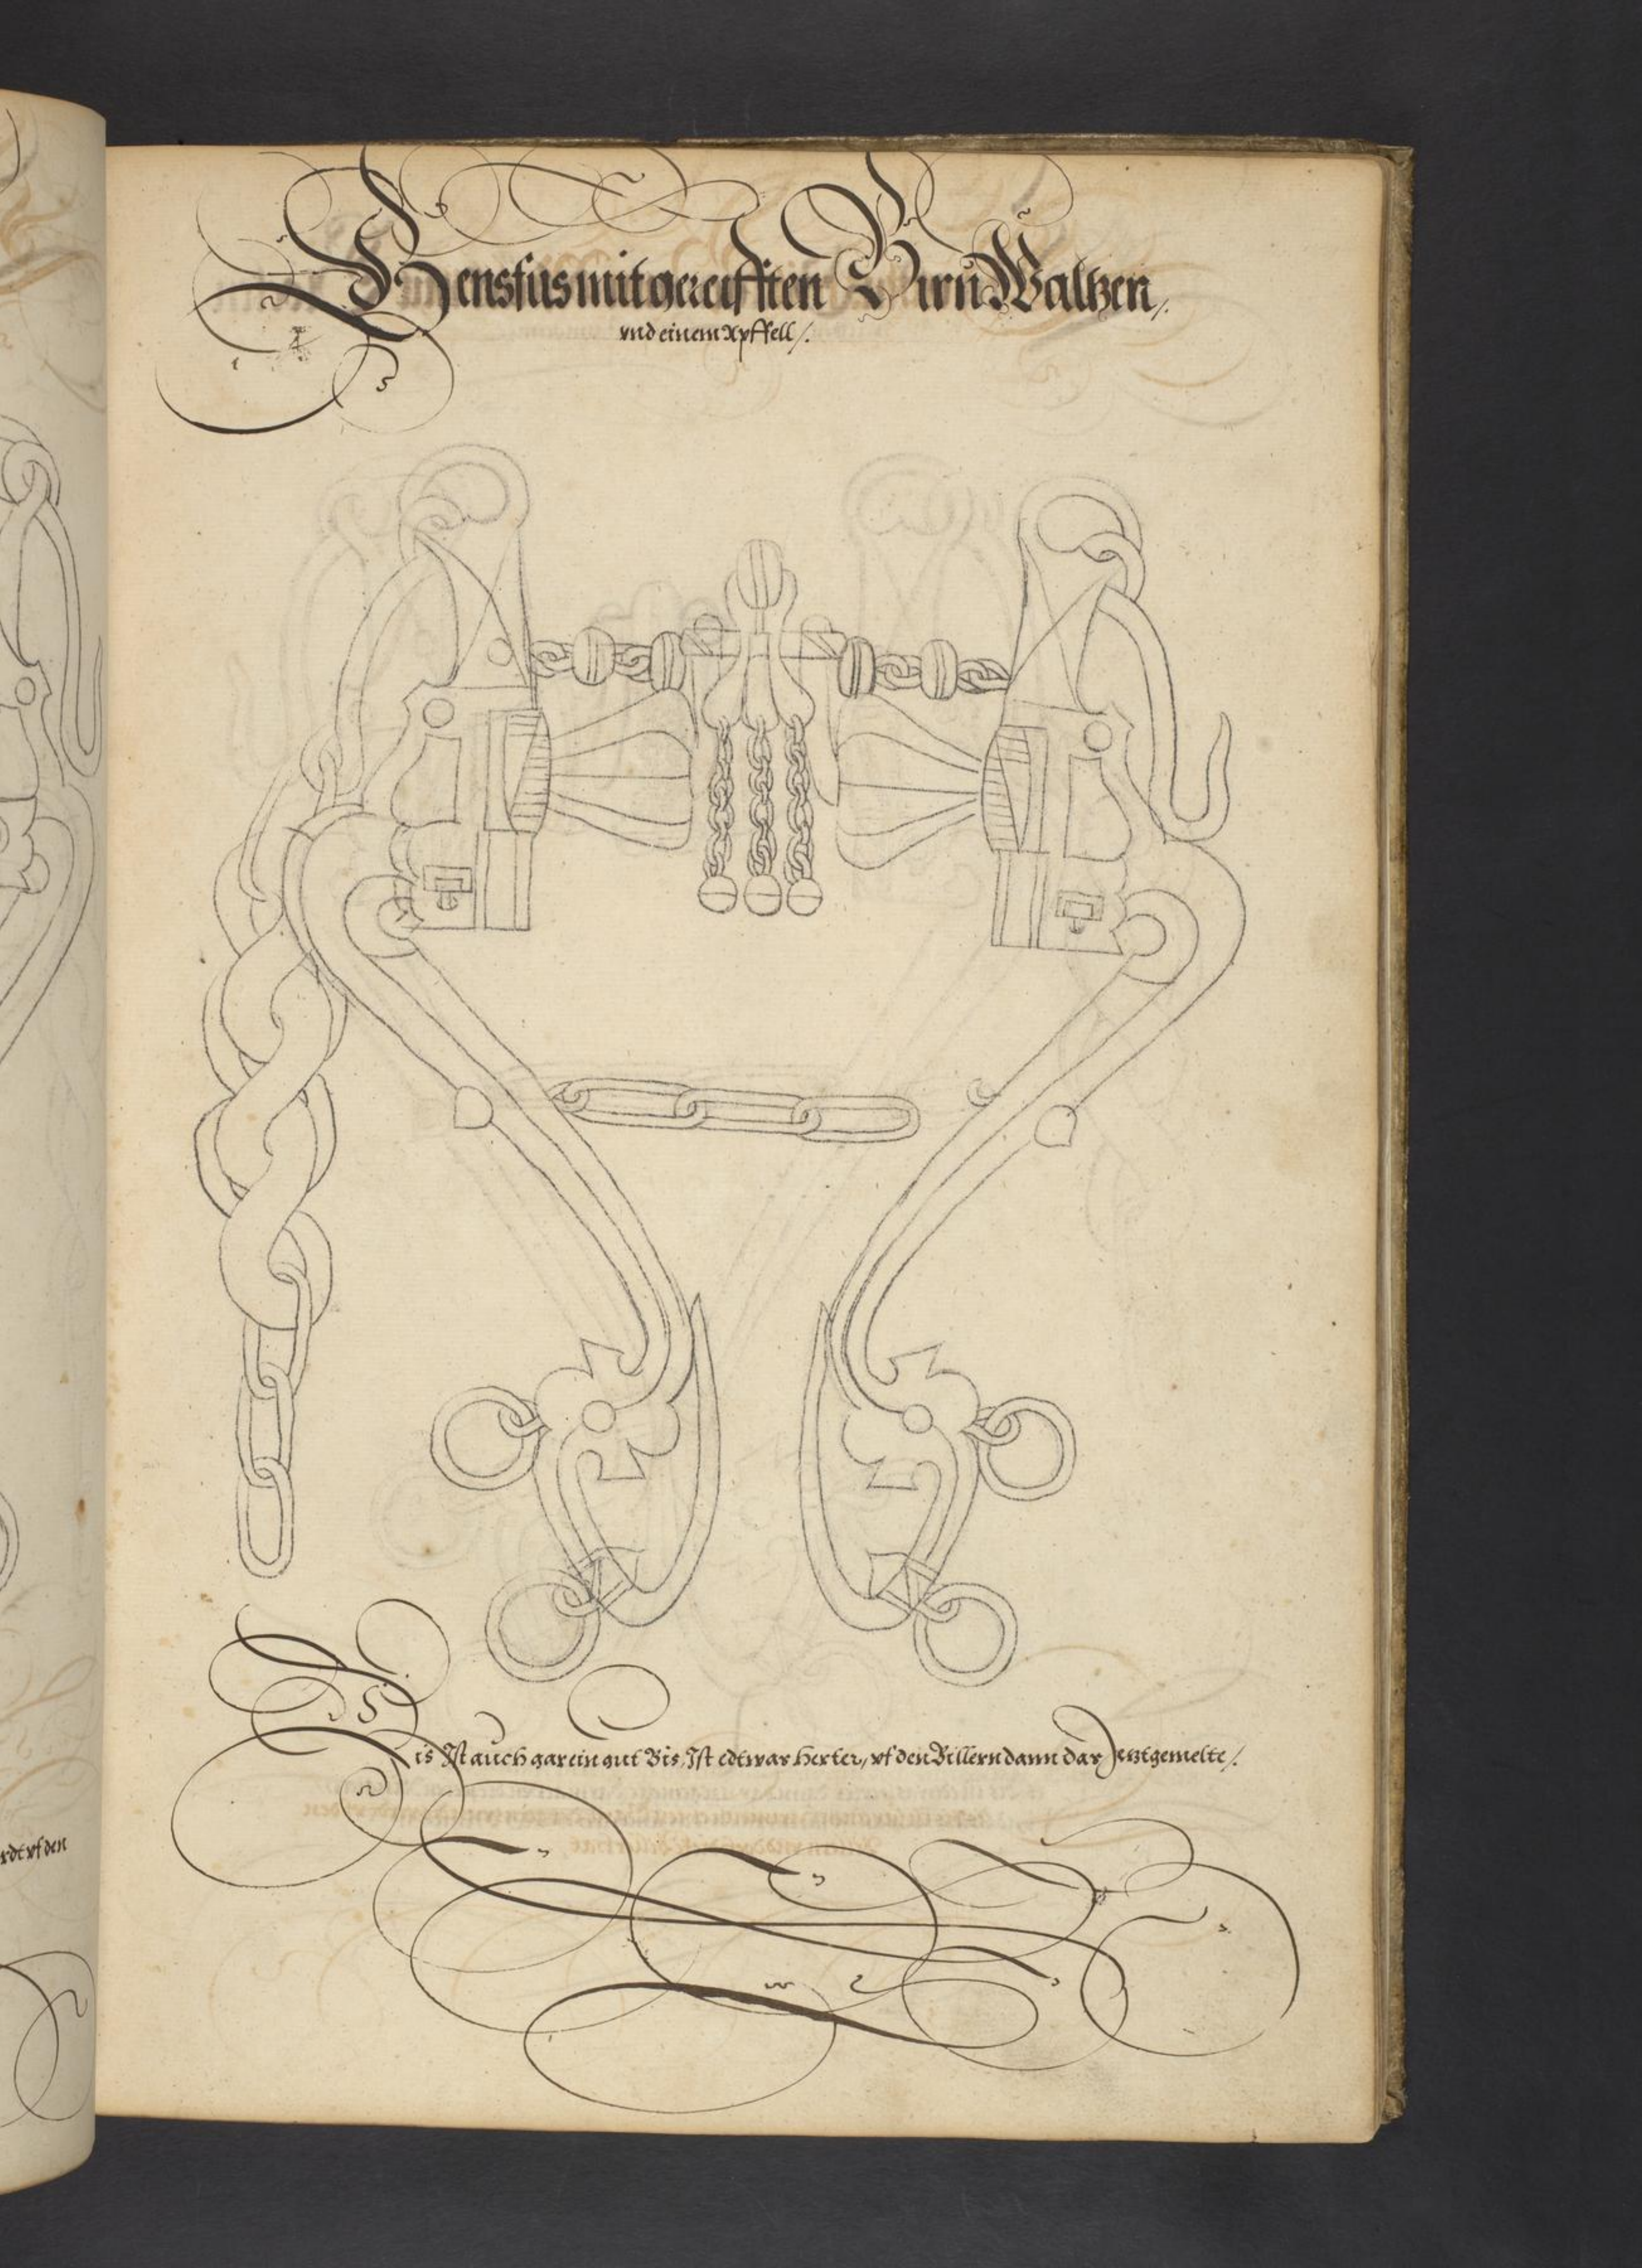 Gensfus mit gereifften Birn Waltzen /.
vnd einem Apffell /.
Dis Ist auch gar ein gut Bis, Ist edtwas herter, vf den Billern dann das Jetztgemelte /.
rdt vf den